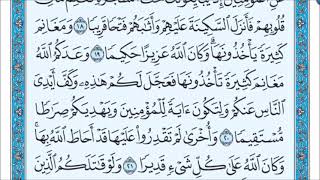 قُلُوبِهِمْ فَأَنزَلَ ٱلسَّكِينَةَ عَلَيْهِمْ وَأَثَٰبَهُمْ فَتْحًا قَرِيبًا ١٨ وَمَغَانِمَ
كَثِيرَةً يَأْخُذُونَهَا ۗ وَكَانَ ٱللَّهُ عَزِيزًا حَكِيمًا ١٩ وَعَدَكُمُ ٱللَّهُ
مَغَانِمَ كَثِيرَةً تَأْخُذُونَهَا فَعَجَّلَ لَكُمْ هَٰذِهِۦ وَكَفَّ أَيْدِىَ
ٱلنَّاسِ عَنكُمْ وَلِتَكُونَ ءَايَةً لِّلْمُؤْمِنِينَ وَيَهْدِيَكُمْ صِرَٰطًا
مُّسْتَقِيمًا ٢٠ وَأُخْرَىٰ لَمْ تَقْدِرُوا۟ عَلَيْهَا قَدْ أَحَاطَ ٱللَّهُ بِهَا ۚ
وَكَانَ ٱللَّهُ عَلَىٰ كُلِّ شَىْءٍ قَدِيرًا ٢١ وَلَوْ قَٰتَلَكُمُ ٱلَّذِينَ